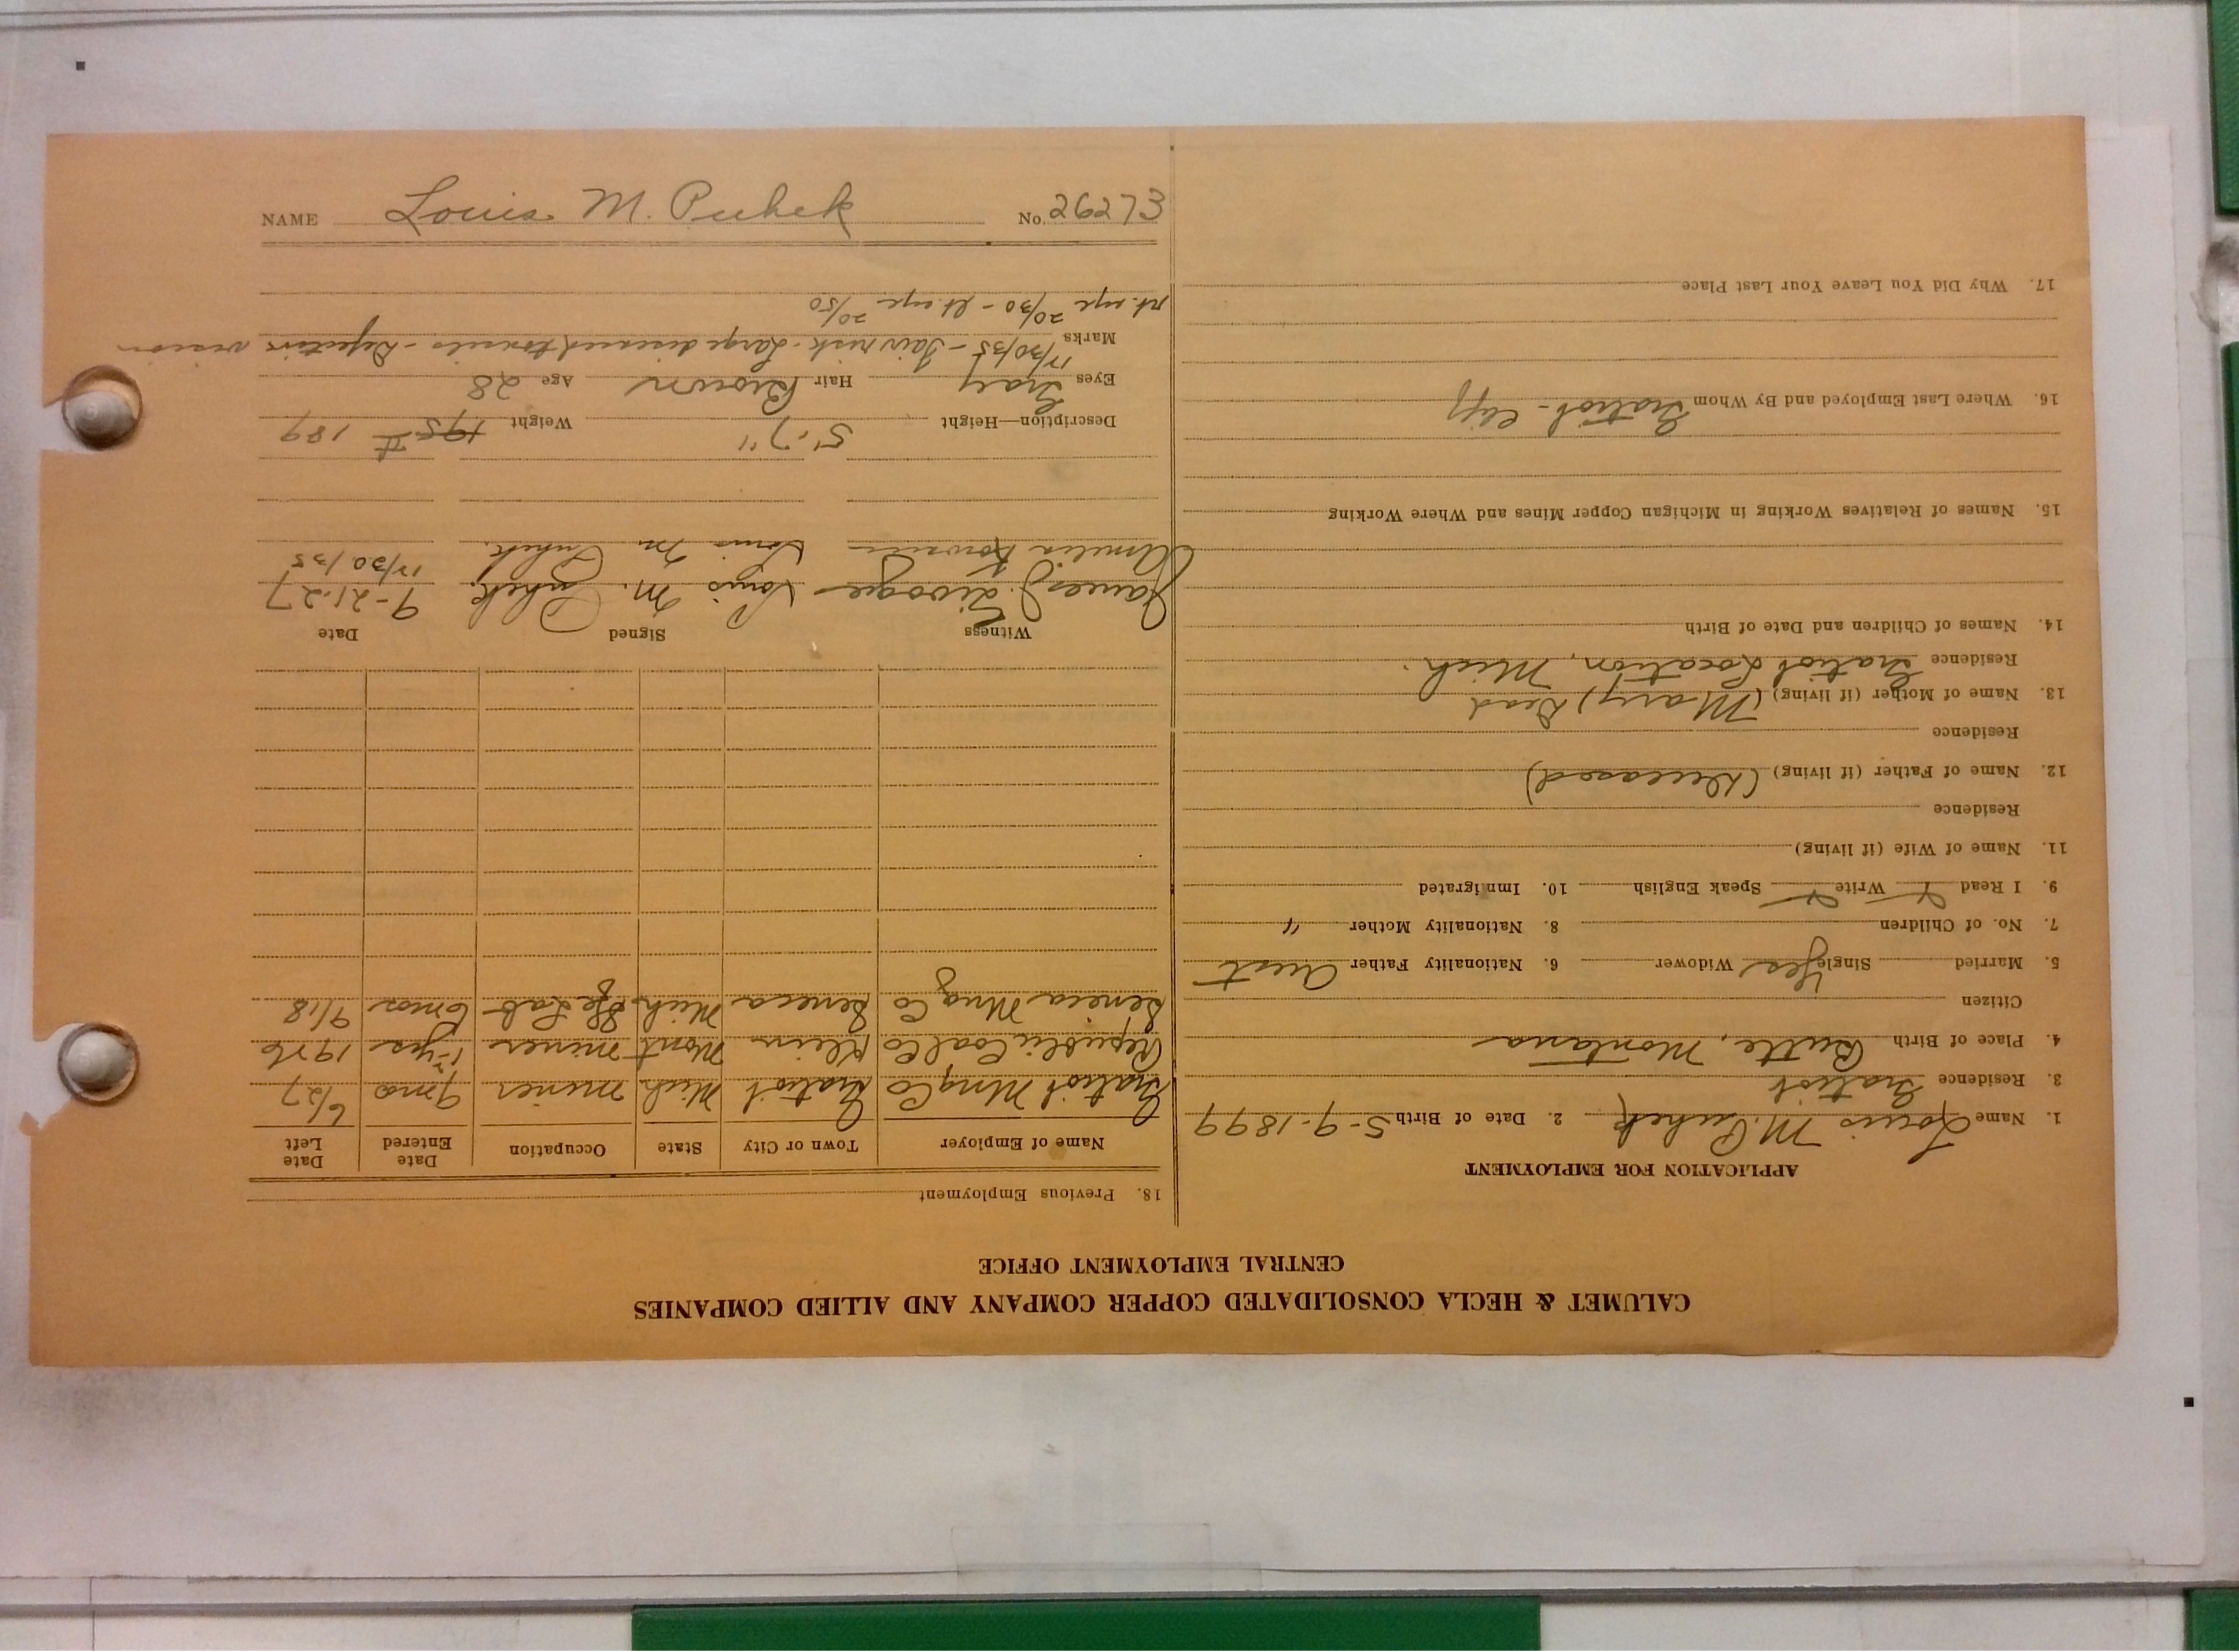 CALUMET & HECLA CONSOLIDATED COPPER COMPANY AND ALLIED COMPANIES
CENTRAL EMPLOYMENT OFFICE
APPLICATION FOR EMPLOYMENT
1. Name Louis M. Puhek 2. Date of Birth 5-9-1899
3. Residence Gratiot
4. Place of Birth Butte, Montana
Citizen
5. Married Single Yes Widower 6. Nationality Father Aust
7. No. of Children 8. Nationality Mother "
9. I Read Write Speak English 10. Immigrated
11. Name of Wife (if living)
Residence
12. Name of Father (if living) (Deceased)
Residence
13. Name of Mother (if living) (Mary) Dead
Residence Gratiot Location, Mich.
14. Names of Children and Date of Birth
15. Names of Relatives Working in Michigan Copper Mines and Where Working
16. Where Last Employed and By Whom Gratiot - Cliff
17. Why Did You Leave Your Last Place
18. Previous Employment
Name of Employer Town or City State Occupation Date Entered Date Left
Gratiot Mng Co Gratiot Mich miner 9 mo 6/27
Republic Coal Co Klein Mont miner yrs 1926
Seneca Mng Co Seneca Mich Sfe Lab 6 mos 9/18
Witness Signed Date
James J. Louis M. Puhek 9-21-27
Amelia Louis M Puhek. 12/30/35
Description—Height 5'-7" Weight 195 # 189
Eyes Gray Hair Brown Age 28
Marks 12/30/35 - Fair risk - Large diseased tonsils - Defective vision
rt. eye 20/30 - lt. eye 20/50
NAME Louis M. Puhek No. 26273